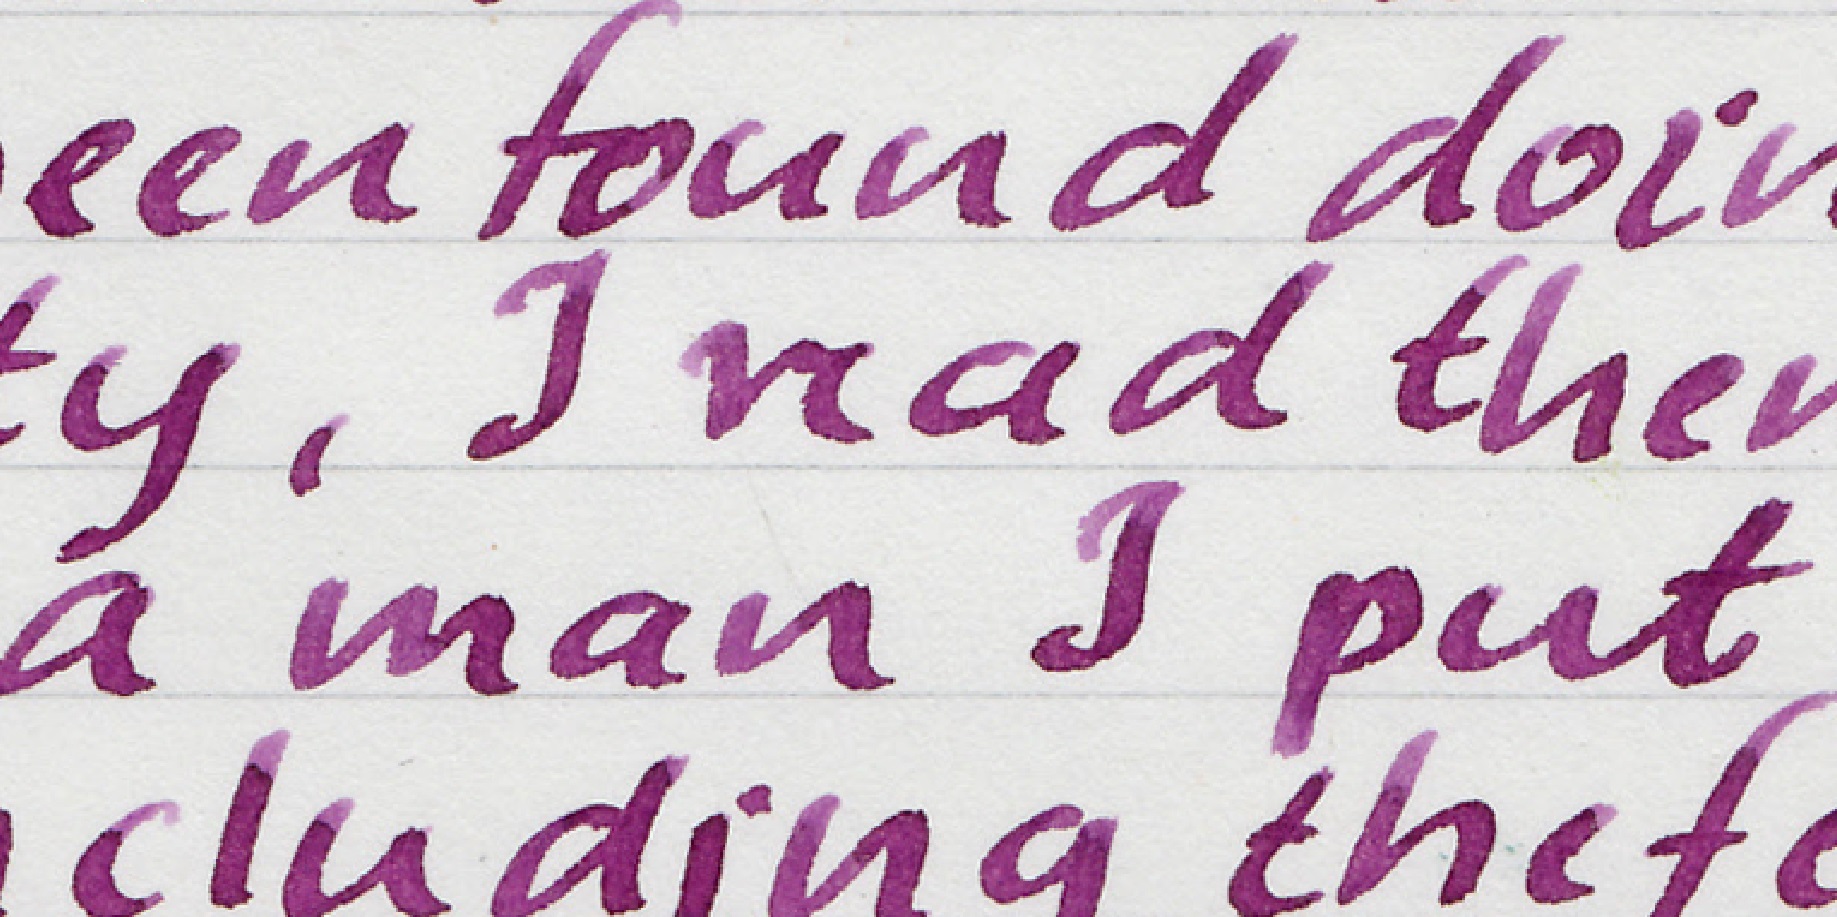 been found doin
ty, I read them
a man I put
cluding the fo